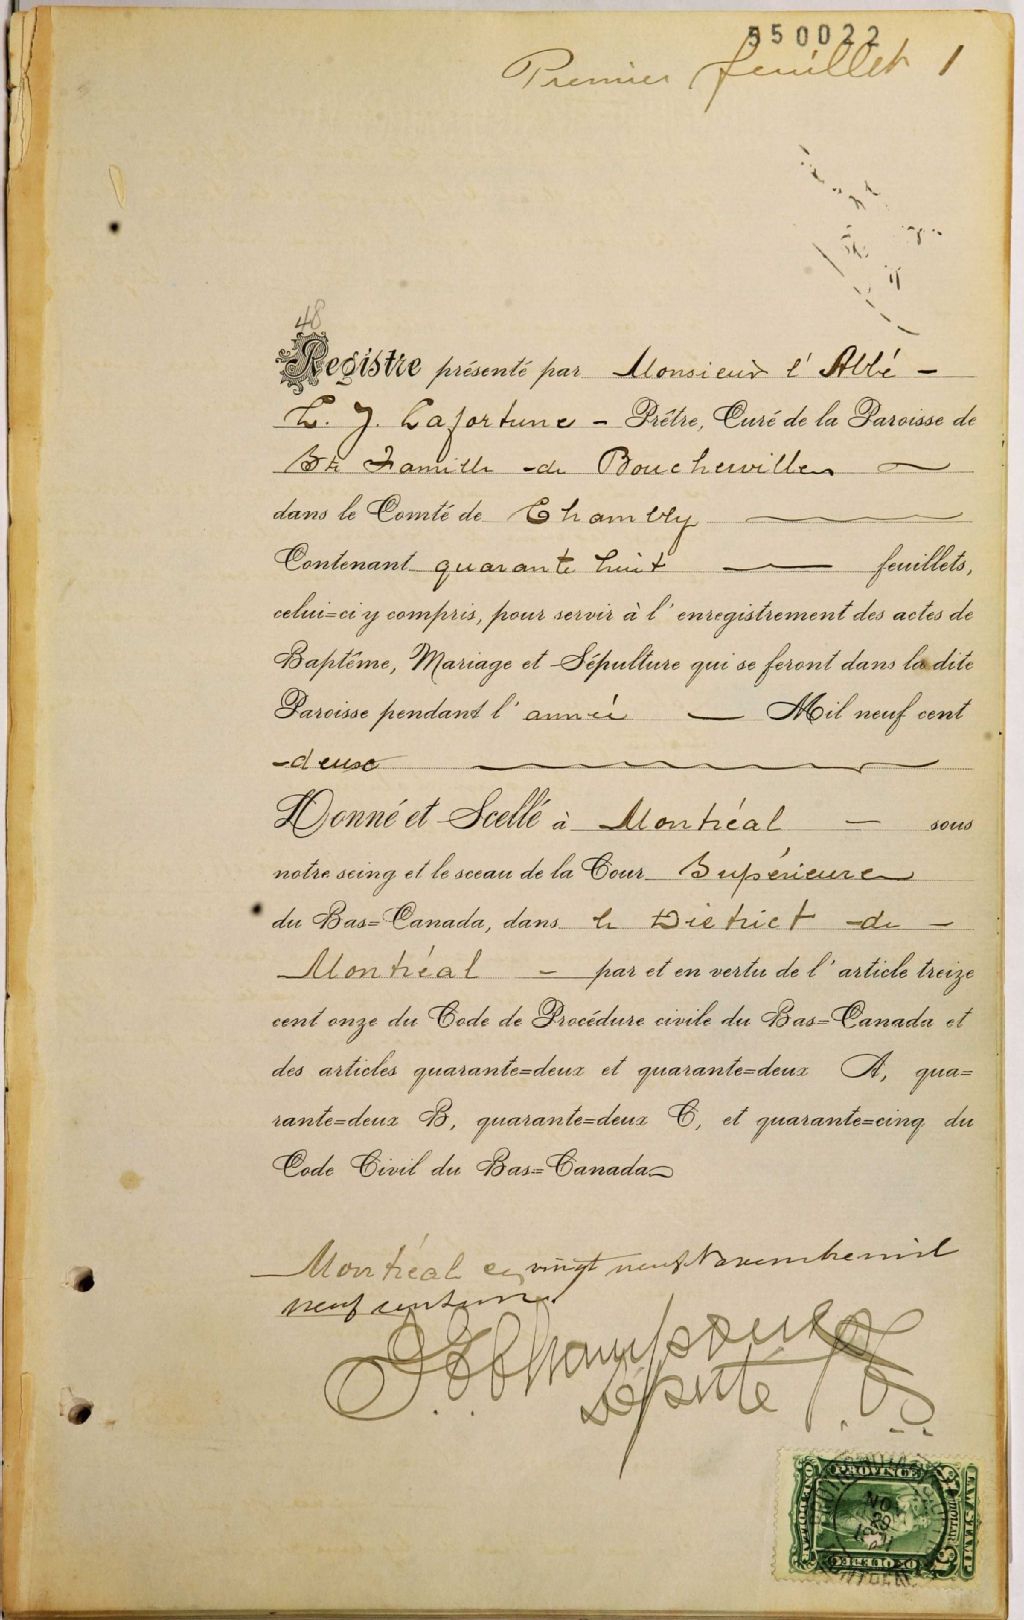 550022
Premier feuillet 1
48
Registre présenté par Monsieur l'Abbé -
L. J. Lafortune - Prêtre, Curé de la Paroisse de
Ste Famille de Boucherville
dans le Comté de Chambly
Contenant quarante huit feuillets,
celui=ci y compris, pour servir à l'enregistrement des actes de
Baptême, Mariage et Sépulture qui se feront dans la dite
Paroisse pendant l'année — Mil neuf cent
deux
Donné et Scellé à Montréal — sous
notre seing et le sceau de la Cour Supérieure
du Bas=Canada, dans le District de -
Montréal - par et en vertu de l'article treize
cent onze du Code de Procédure civile du Bas=Canada et
des articles quarante=deux et quarante=deux A, qua=
rante=deux B, quarante=deux C, et quarante=cinq du
Code Civil du Bas=Canada
Montréal ce vingt neuf Novembre mil
neuf cent un.
Député P.C.S.
PROVINCE
LAW STAMP
DOLLAR
QUEBEC
NOV